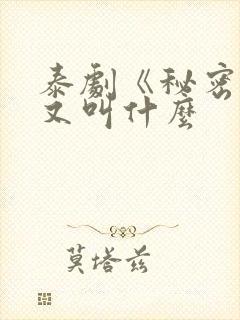 泰劇《秘密
又叫什麼
莫塔兹